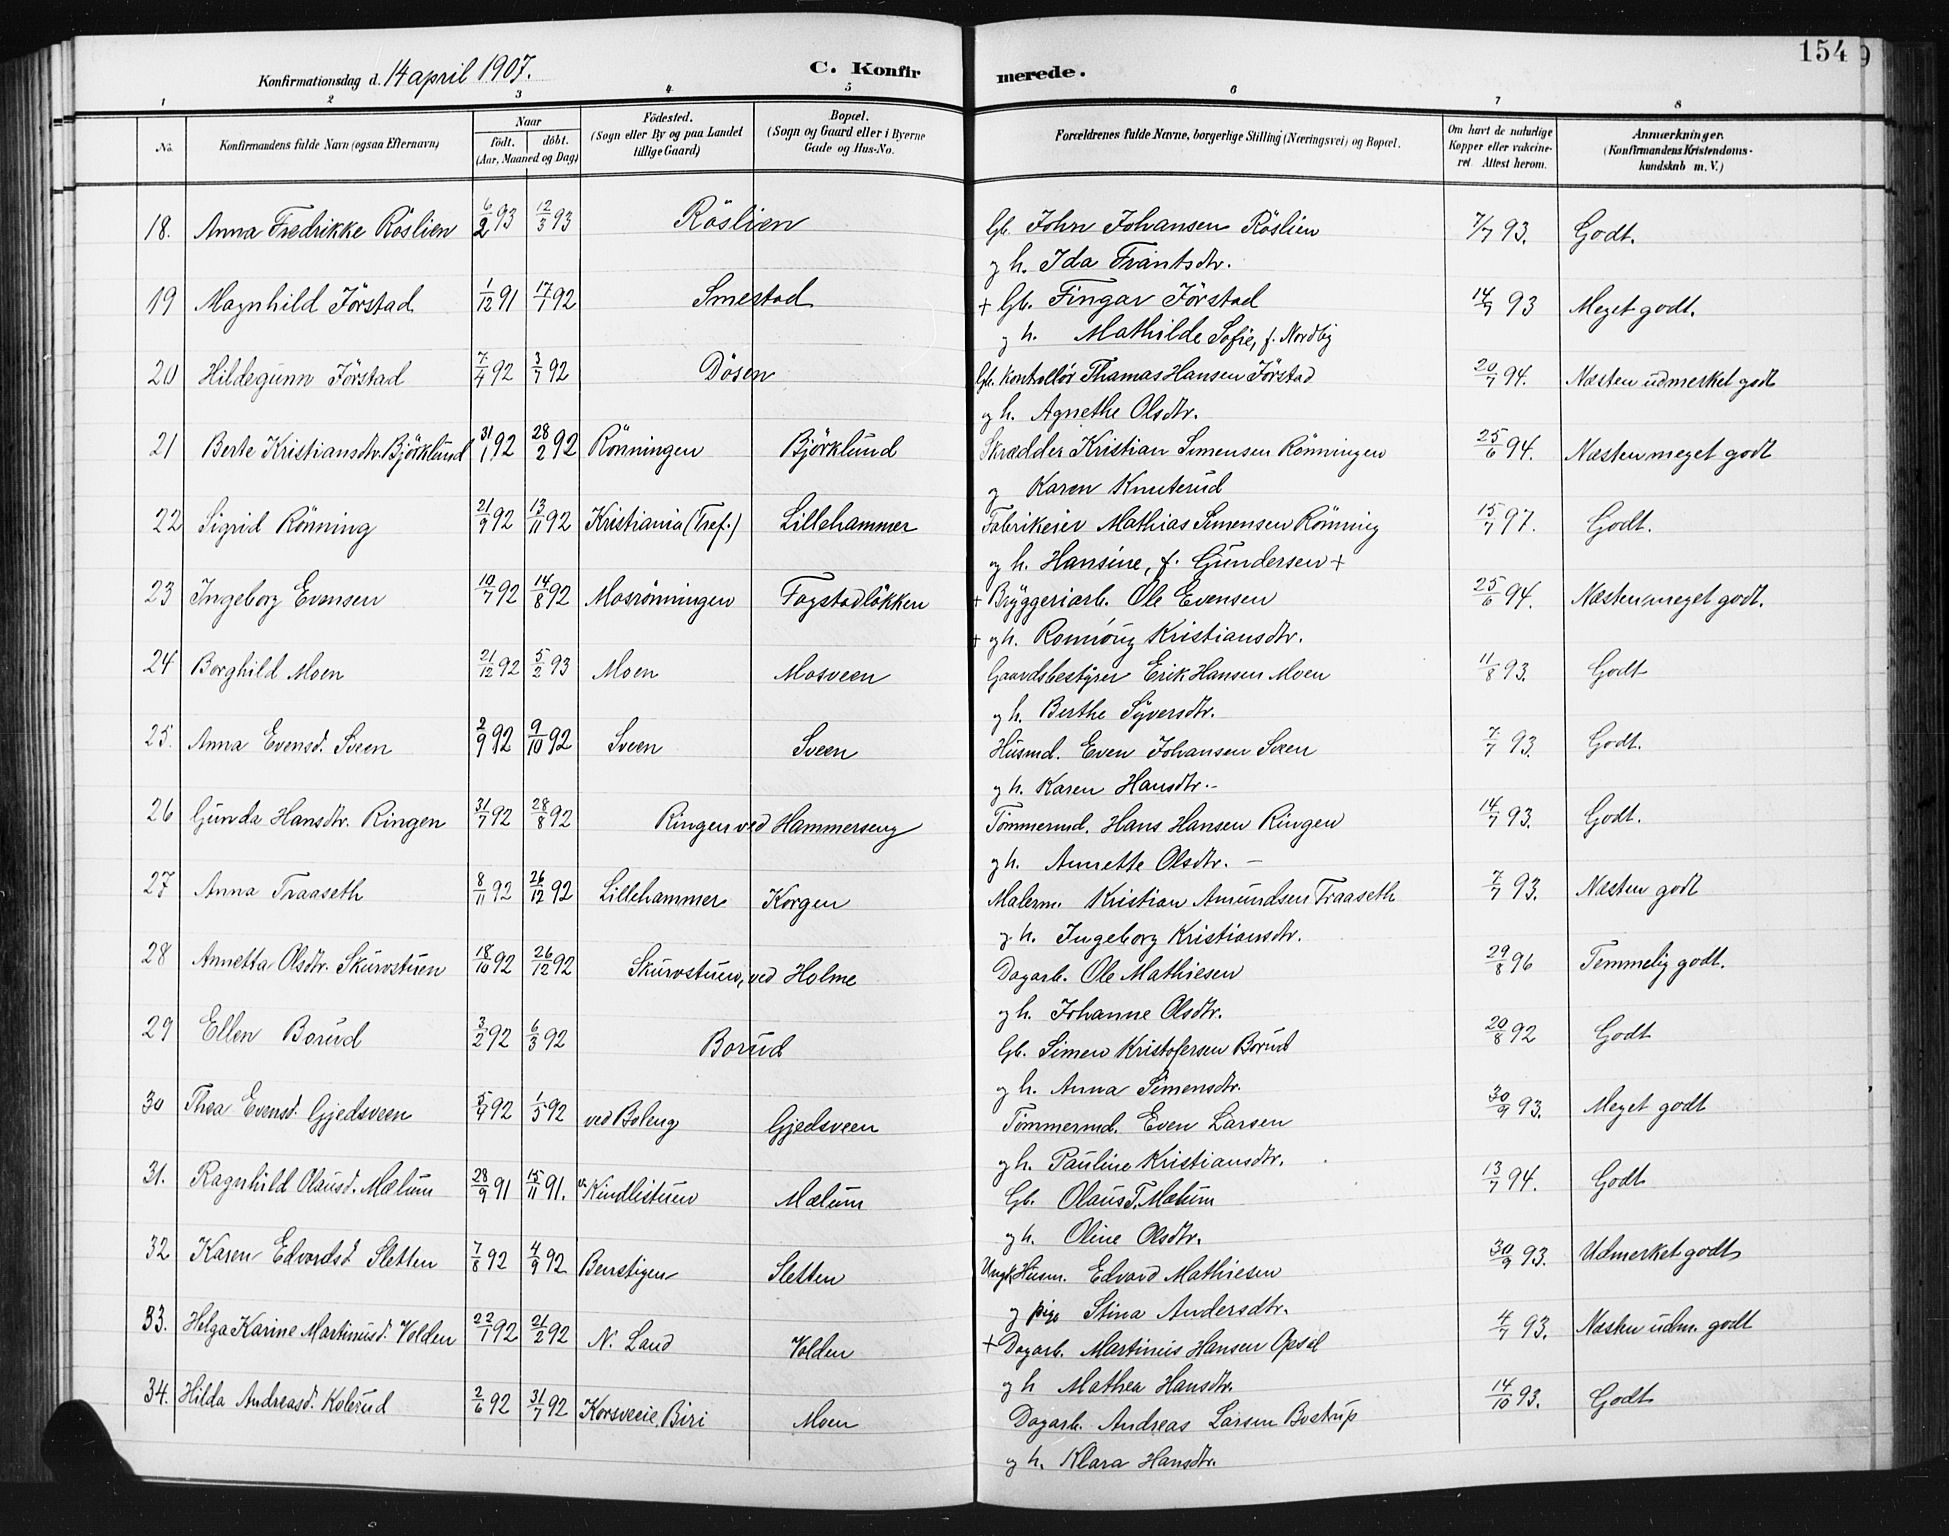 154
Konfirmationsdag d. 14 april 1907. C. Konfirmerede.
1 2 3 4 5 6 7 8
No. Konfirmandens fulde Navn (ogsaa Efternavn) Naar født. døbt. (Aar, Maaned og Dag) Fødested. (Sogn eller By og paa Landet tillige Gaard) Bopæl. (Sogn og Gaard eller i Byerne Gade og Hus-No. Forældrenes fulde Navne, borgerlige Stilling (Næringsvei) og Bopæl. Om havt de naturlige Kopper eller vakcineret Attest herom. Anmærkninger. (Konfirmandens Kristendomskundskab m. V.)
18. Anna Fredrikke Röslien 6/2 93 12/3 93 Röslien Gb. John Johansen Röslien 7/7 93. Godt.
og h. Ida Frantsdtr.
19 Magnhild Jörstad 1/12 91 17/1 92 Smestad + Gb. Fingar Jörstad 14/7 93 Meget godt.
og h. Mathilde Sofie, f. Nordby
20 Hildegunn Jörstad 7/4 92 3/7 92 Dösen Gb. Kontrollör Thomas Hansen Jörstad 20/7 94. Næsten udmerket godt
og h. Agnethe Olsdtr.
21 Berte Kristiansdtr. Björklund 31/1 92 28/2 92 Rönningen Björklund Skrædder Kristian Simensen Rönningen 25/6 94. Næsten meget godt
og Karen Knuterud
22 Sigrid Rönning 21/9 92 13/11 92 Kristiania (Tref.) Lillehammer Fabrikeier Mathias Simensen Rönning 15/7 97. Godt.
og h. Hansine, f. Gundersen +
23 Ingeborg Evensen 10/7 92 14/8 92 Mosrönningen Fagstadlökken + Bryggeriarb. Ole Evensen 25/6 94. Næsten meget godt.
+ og h. Rönnöug Kristiansdtr.
24 Borghild Moen 21/12 92 5/2 93 Moen Mosveen Gaardsbestyrer Erik Hansen Moen 11/8 93. Godt
og h. Berthe Syversdtr.
25. Anna Evensd. Sveen 2/9 92 9/10 92 Sveen Sveen Husmd. Even Johansen Sveen 7/7 93. Godt.
og h. Karen Hansdtr. -
26 Gunda Hansdtr. Ringen 31/7 92 28/8 92 Ringen ved Hammerseng Tömmermd. Hans Hansen Ringen 14/7 93. Godt.
og h. Annette Olsdtr. -
27 Anna Traaseth 8/11 92 26/12 92 Lillehammer Korgen Malerm. Kristian Amundsen Traaseth 7/7 93. Næsten godt
og h. Ingeborg Kristiansdtr.
28 Annetta Olsdtr. Skurvstuen 18/10 92 26/12 92 Skurvstuen, ved Holme Dagarb. Ole Mathiesen 29/8 96 Temmelig godt.
og h. Johanne Olsdtr.
29 Ellen Borud 3/2 92 6/3 92 Borud Gb. Simen Kristofersen Borud 20/8 92 Godt
og h. Anna Simensdtr.
30 Thea Evensd. Gjedsveen 5/4 92 1/5 92 ved Boleng Gjedsveen Tömmermd. Even Larsen 30/9 93. Meget godt
og h. Pauline Kristiansdtr.
31. Ragnhild Olausd. Mælum 28/9 91 15/11 91. v. Kindlistuen Mælum Gb. Olaus T. Mælum 13/7 94. Godt
og h. Oline Olsdtr.
32 Karen Edvardsd Sletten 7/8 92 4/9 92 Benstigen Sletten Ungk. Husm. Edvard Mathiesen 30/9 93. Udmerket godt
og pige Stina Andersdtr.
33. Helga Karine Martinusd. Volden 22/1 92 21/2 92 N. Land Volden + Dagarb. Martinius Hansen Opsal 4/7 93. Næsten udm. godt
og h Mathea Hansdtr.
34. Hilda Andreasd. Kolerud 2/6 92 31/7 92 Korsveeie, Biri Moen Dagarb. Andreas Larsen Bostrup 14/10 93. Godt
og h. Klara Hansdtr.